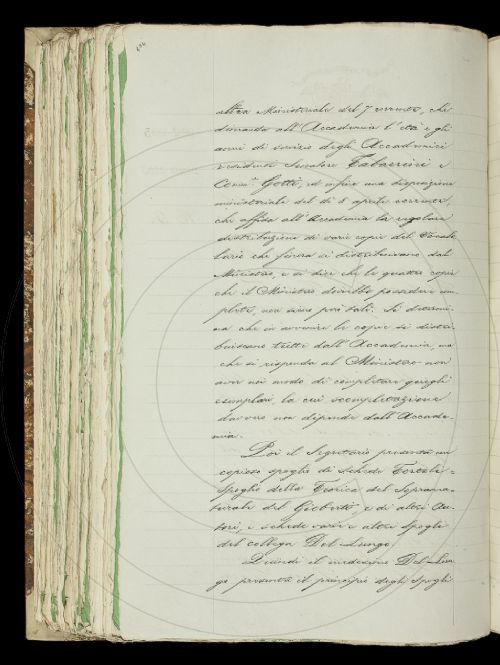 altra Ministeriale del 7 corrente, che
domanda all'Accademia l'età e gli
anni di servizio degli Accademici
residenti Senatore Tabarrini e
Comm.e Gotti, ed infine una disposizione
ministeriale del dì 8 aprile corrente,
che affida all'Accademia la regolare
distribuzione di varie copie del Vocabo
lario che finora si distribuivano dal
Ministero, e si dice che le quattro copie
che il Ministero dovrebbe possedere com
plete, non sono però tali. Si determi-
na che in avvenire le copie si distri-
buiscano tutte dall'Accademia, ma
che si risponda al Ministero non
aver noi modo di completare quegli
esemplari, la cui scompletazione
davvero non dipende dall'Accade-
mia.
Poi il Segretario presenta un
copioso spoglio di schede Tortoli-
Spoglio della Teorica del Sopranna-
turale del Gioberti, e di altri Au-
tori, e schede varie e altri spogli
del collega Del-Lungo.
Quindi il medesimo Del-Lun
go presenta il principio degli Spogli